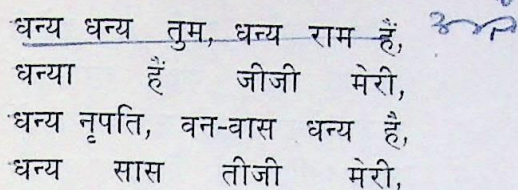 धन्य धन्य तुम, धन्य राम हैं,
धन्या हैं जीजी मेरी,
धन्य नृपति, वन-वास धन्य है,
धन्य सास तीजी मेरी,